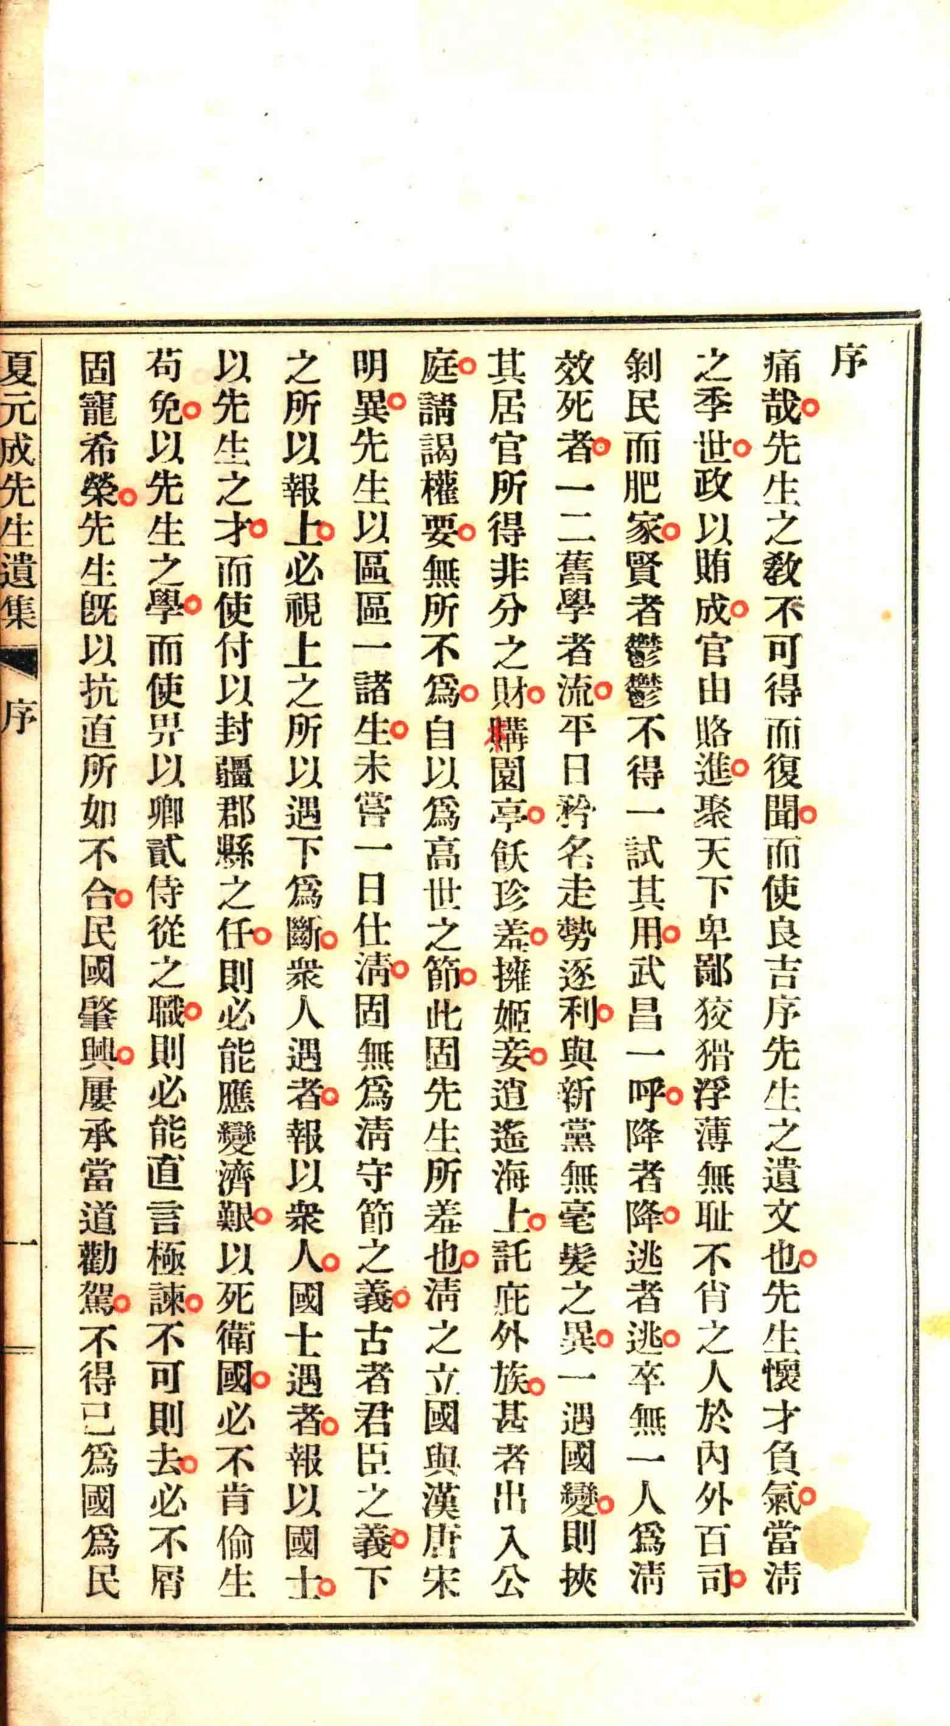 序
痛哉先生之敎不可得而復聞而使良吉序先生之遺文也先生懷才負氣當淸
之季世政以賄成官由賂進聚天下卑鄙狡猾浮薄無耻不肖之人於內外百司
剝民而肥家賢者鬱鬱不得一試其用武昌一呼降者降逃者逃卒無一人爲淸
效死者一二舊學者流平日矜名走勢逐利與新黨無毫髮之異一遇國變則挾
其居官所得非分之財購園亭飫珍羞擁姬妾逍遙海上託庇外族甚者出入公
庭請謁權要無所不爲自以爲高世之節此固先生所羞也淸之立國與漢唐宋
明異先生以區區一諸生未嘗一日仕淸固無爲淸守節之義古者君臣之義下
之所以報上必視上之所以遇下爲斷衆人遇者報以衆人國士遇者報以國士
以先生之才而使付以封疆郡縣之任則必能應變濟艱以死衛國必不肯偷生
苟免以先生之學而使畀以卿貳侍從之職則必能直言極諫不可則去必不屑
固寵希榮先生旣以抗直所如不合民國肇興屢承當道勸駕不得已爲國爲民
夏元成先生遺集 序 一